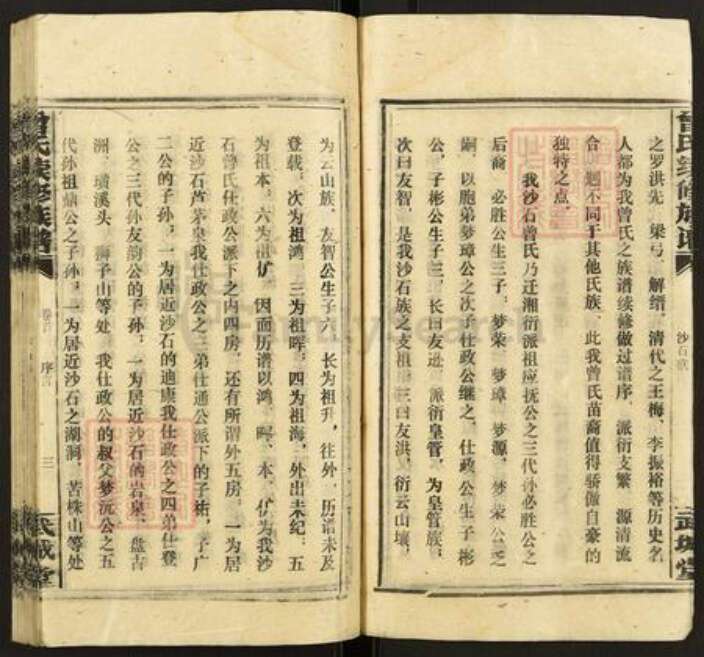 曾氏续修族谱
沙石族
武城堂
之罗洪先、梁弓、解缙，清代之王梅、李振裕等历史名
人都为我曾氏之族谱续修做过谱序。派衍支繁，源清流
合，迥不同于其他氏族。此我曾氏苗裔值得骄傲自豪的
独特之点。
我沙石曾氏乃迁湘衍派祖应抚公之三代孙必胜公之
后裔。必胜公生三子：梦荣、梦璋、梦源。梦荣公乏
嗣，以胞弟梦璋公之次子仕政公继之。仕政公生子彬
公，子彬公生子三，长曰友逊，派衍皇管，为皇管族；
次曰友智，是我沙石族之支祖；三曰友洪，衍云山壤，
为云山族。友智公生子六，长为祖升，往外，历谱未及
登载。次为祖鸿，三为祖晖，四为祖海，外出未纪。五
为祖本，六为祖伏，因而历谱以鸿、晖、本、伏为我沙
石曾氏仕政公派下之内四房。还有所谓外五房，一为居
近沙石芦茅泉我仕政公之三弟仕通公派下的子桁，子广
二公的子孙，一为居近沙石的迪康我仕政公之四弟仕登
公之三代孙友韵公的子孙，一为居近沙石的岩泉、盘古
洲、璜溪头、狮子山等处，我仕政公的叔父梦沅公之五
代孙祖鼎公之子孙，一为居近沙石之湖洞、苦株山等处
曾氏续修族谱
卷首 序言 三
武城堂